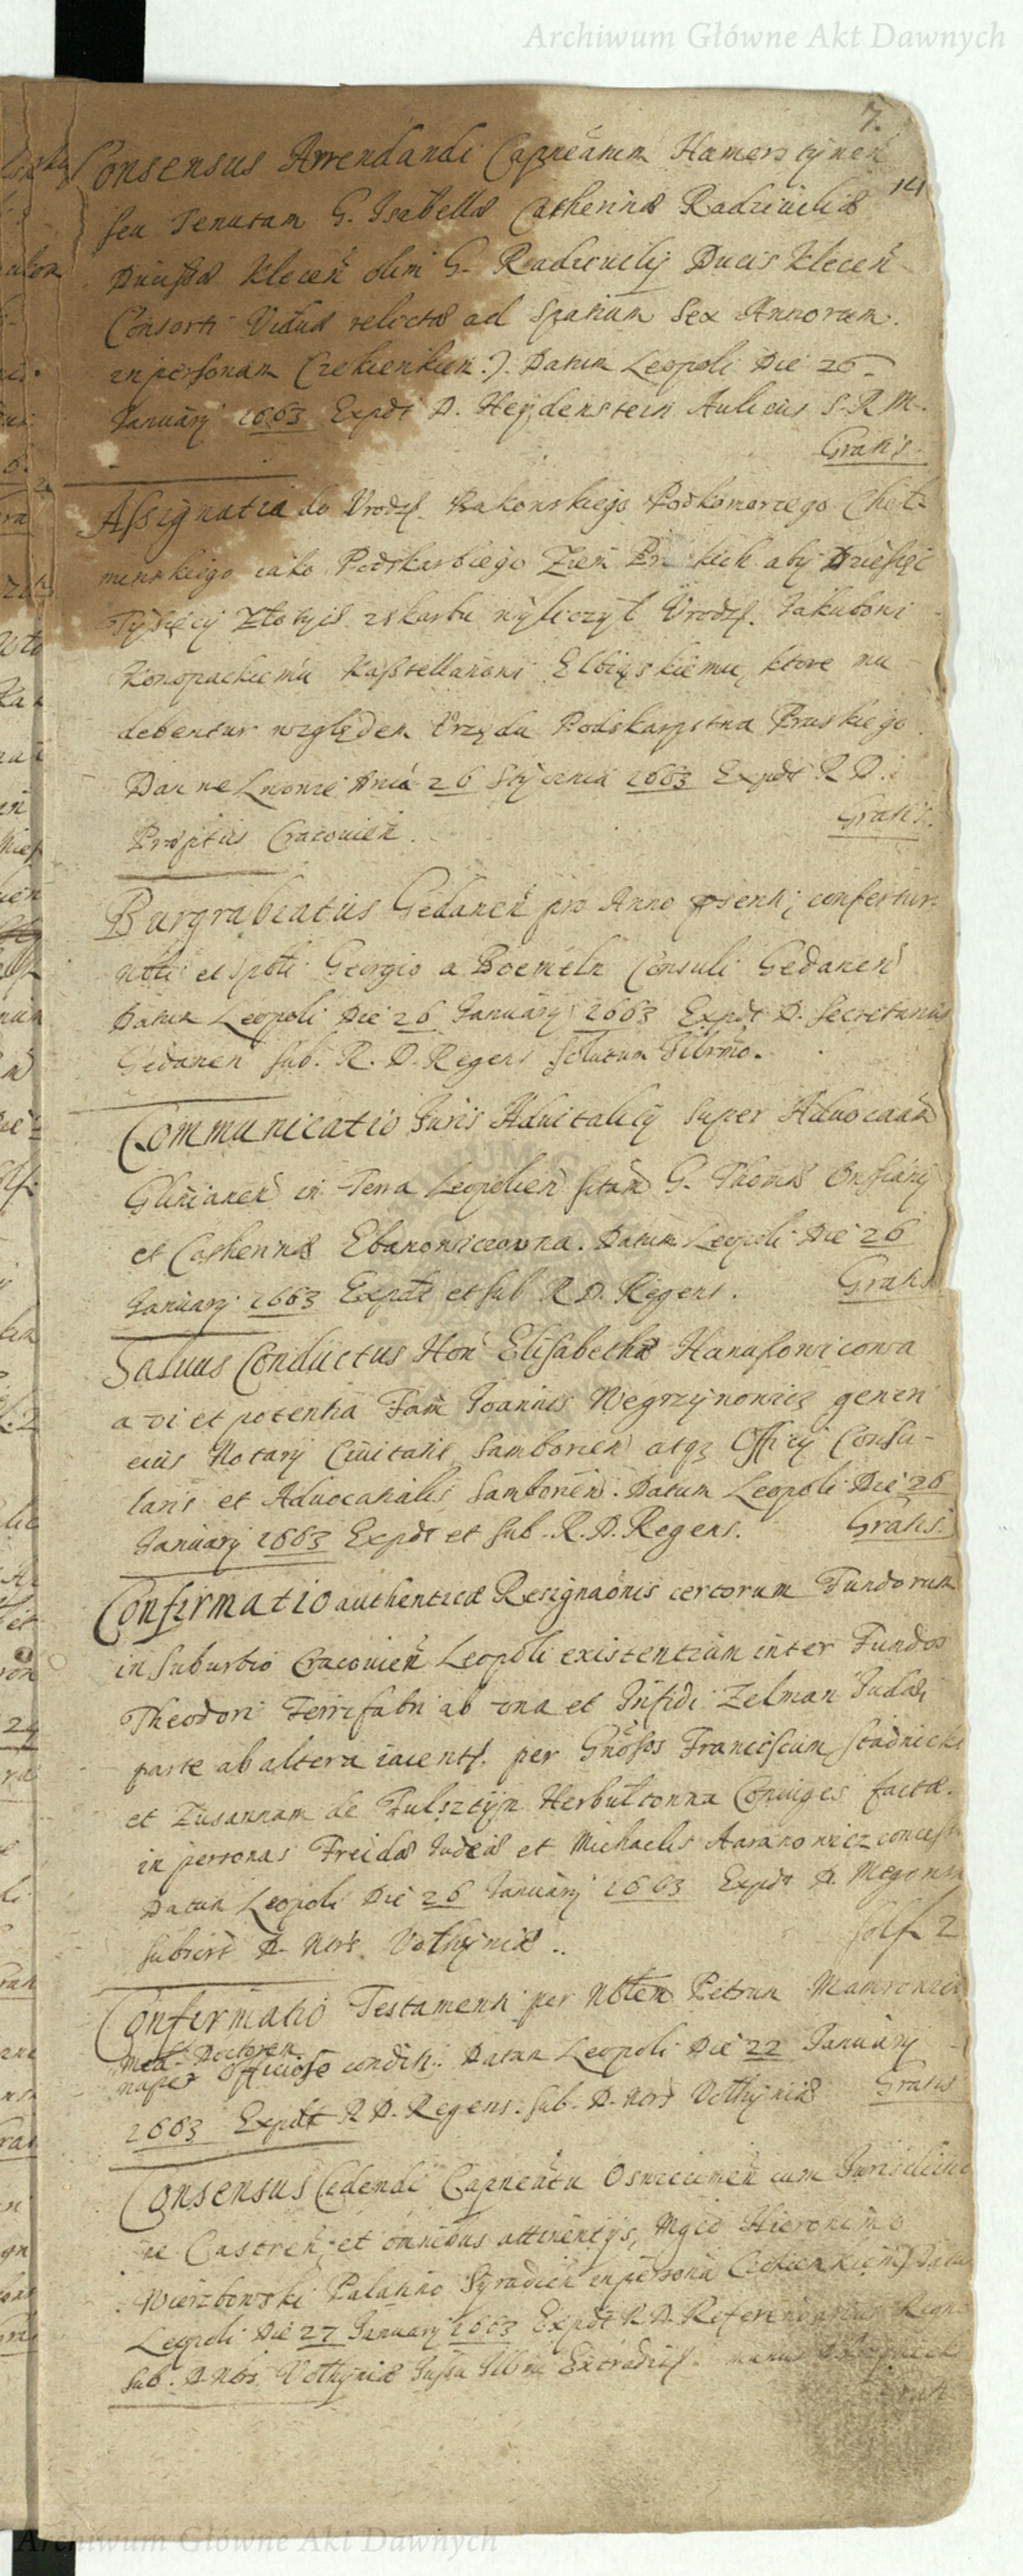 Archiwum Główne Akt Dawnych
7.
141
Consensus Arrendandi Capneatum Hamerstÿnen
seu Tenutam G. Isabellæ Catherinæ Radziuiliæ
Ducissæ Klecen̄ olim G. Radziuilij Ducis Klecen̄
Consorti Viduæ relictæ ad spatium Sex Annorum.
in personam Czekienkien:). Datum Leopoli Die 26
Januarÿ 1663 Expdt D. Heÿdenstein Aulicus S. R. M.
Gratis.
Assignatia do Vrodz. Kakowskiego Podkomorzego Cheł-
minskiego iako Podskarbiego Ziem Pr kich aby Dziesięć
Tysięcy Złotych zskarbu wyliczył Vrodz. Jakubowi
Konopackiemu Kasztellanowi Elbiąskiemu, ktore mu
debentur względem Vrzędu Podskarpstwa Pruskiego
Dan we Lwowie Dnia 26 Stycznia 1663 Expdt R D.
Præptus Cracouien̄.
Gratis.
Burgrabiatus Gedanen̄ pro Anno psenti; confertur
Nobli et Spbli Georgio a Boemeln Consuli Gedanen̄
Datum Leopoli Die 26 Januarÿ 1663 Expdt D. Secretarius
Gedanen sub. R. D. Regens Solutum Illrmo.
Communicatio Juris Aduitalicij super Aduocaam
Glinianen̄ in Terra Leopolien̄ sitam G. Thomæ
et Catherinæ Datum Leopoli Die 26
Januarÿ 1663 Expdt et sub R D. Regens.
Gratis
Saluus Conductus Hon Elisabethæ Hanusowiczowa
a vi et potentia Fam Joannis Wegrzÿnowicz generi
eius Notarij Ciuitatis Samborien̄ atqz Officij Consu-
laris et Aduocatialis Samborien̄. Datum Leopoli Die 26
Januarÿ 1663 Expdt et sub. R. D. Regens.
Gratis.
Confirmatio authenticæ Resignaonis certorum Fundorum
in suburbio Cracouien̄ Leopoli existentium inter Fundos
Theodori Ferrifabri ab vna et Infidi Zelman Judæi
parte ab altera iacents. per Gnosos Franciscum Stadnicki
et Zusannam de Fulsztÿn Herbultonna Coniuges factæ.
in personas Freidæ Judeæ et Michaelis Aaranowicz
Datum Leopoli Die 26 Januarÿ 1663 Expdt D.
subscrt D. Nors Volhÿniæ..
solf 2
Confirmatio Testamenti per Nblem Petrum
Med. Doctorem
nuper Officiose conditi. Datum Leopoli Die 22 Januarÿ
1663 Expdt R D. Regens. sub. D. Nors Volhÿniæ
Gratis
Consensus Cedendi Capneatu Oswiecimen̄ cum
ne Castren̄, et omnibus attinentijs, Mgco Hieronimo
Wierzbowski Palatino Syradien̄ in persona
Leopoli Die 27 Januarÿ 1663 Expdt R D. Referendarius Regni
sub. D. Nors. Volhÿniæ Jussu Illrmi
Archiwum Główne Akt Dawnych